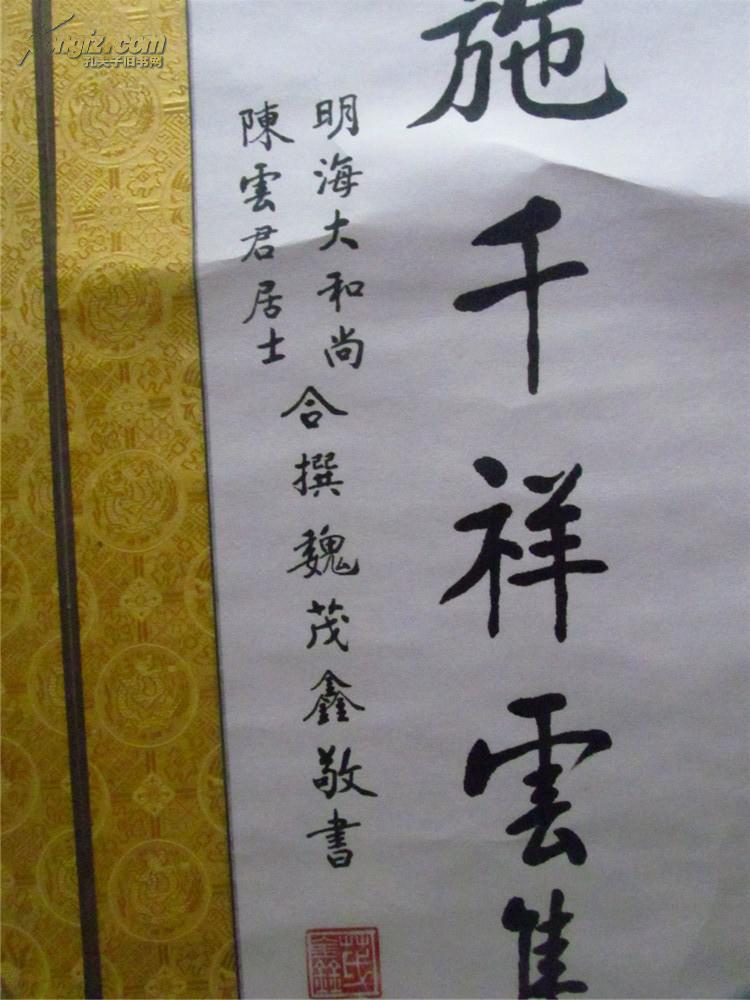 施千祥雲集
明海大和尚
陳雲君居士
合撰魏茂鑫敬書
茂鑫
Kongfz.com
孔夫子旧书网